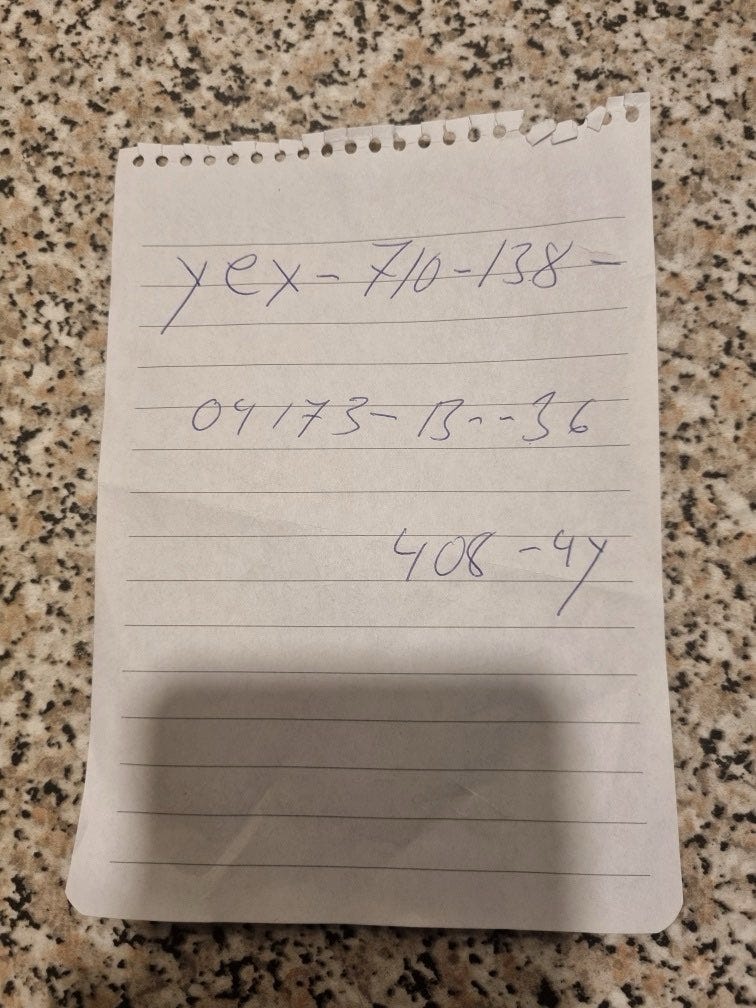 yex-710-138-
04173-13--36
408-4y